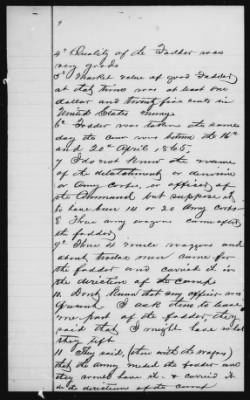 4th Quality of the Fodder was
very good
5th Market value of good Fodder
at that time was at least one
dollar and twenty five cents in
United States money
6th Fodder was taken the same
day the corn was between the 16th
and 20th April 1865,
7 I do not know the name
of the detachment or
or Army Corps, or officer of
the Command but suppose it
to have been 14 or 20 Army Corps
8 Three army wagons came after
the fodder
9th Three 6 mule wagons and
about twelve men came for
the fodder and carried it in
the direction of the camp
10. Dont know that any officer was
present I ask them to leave
me part of the fodder, they
said that I might have what
they left
11 They said, (them with the wagons)
that the army needed the fodder and
they would have it & carried it
in the direction of the camp